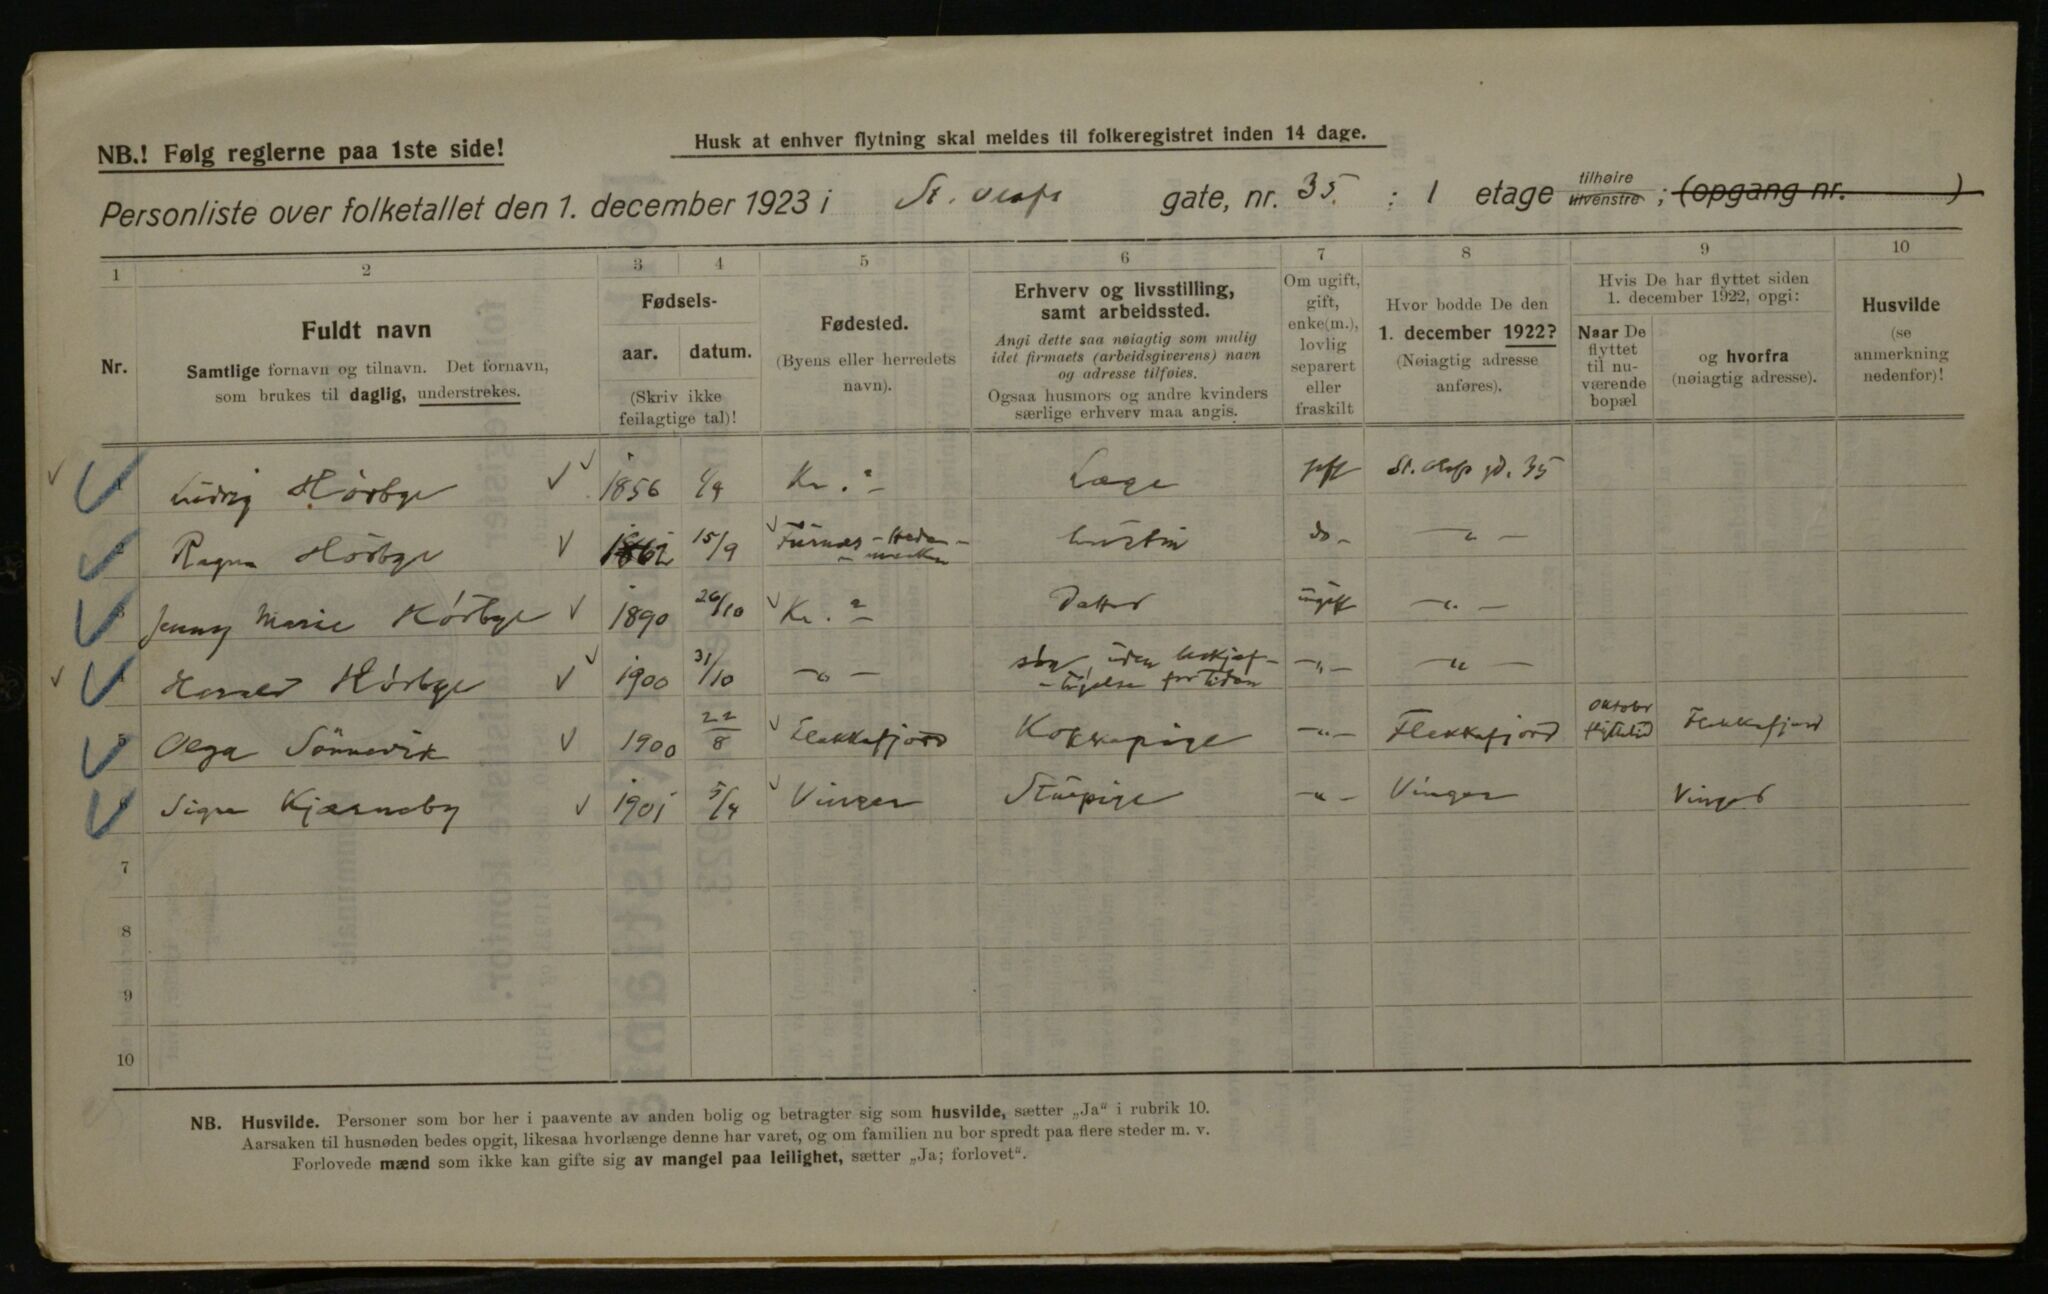 NB.! Følg reglerne paa 1ste side!
Husk at enhver flytning skal meldes til folkeregistret inden 14 dage.
Personliste over folketallet den 1. december 1923 i St. Olafs gate, nr. 35 : 1 etage tilhøire tilvenstre ; (opgang nr. )
1 2 3 4 5 6 7 8 9 10
Nr.
Fuldt navn
Samtlige fornavn og tilnavn. Det fornavn,
som brukes til daglig, understrekes.
Fødsels-
aar. datum.
(Skriv ikke
feilagtige tal)!
Fødested.
(Byens eller herredets
navn).
Erhverv og livsstilling,
samt arbeidssted.
Angi dette saa nøiagtig som mulig
idet firmaets (arbeidsgiverens) navn
og adresse tilføies.
Ogsaa husmors og andre kvinders
særlige erhverv maa angis.
Om ugift,
gift,
enke(m.),
lovlig
separert
eller
fraskilt
Hvor bodde De den
1. december 1922?
(Nøiagtig adresse
anføres).
Hvis De har flyttet siden
1. december 1922, opgi:
Naar De
flyttet
til nu-
værende
bopæl
og hvorfra
(nøiagtig adresse).
Husvilde
(se
anmerkning
nedenfor)!
1 Ludvig Hørbye 1856 Kr. a Læge gift St. Olafs gd. 35
2 Ragna Hørbye 1862 15/9 Furnes - Heden-
- marken Hustru do - - " -
3 Jenny Marie Hørbye 1890 26/10 Kr. a Datter ugift - " -
4 Harald Hørbye 1900 31/10 - " - søn, uden beskjæf-
- tigelse for tiden - " - - " -
5 Olga Sønnevik 1900 22/8 Flekkefjord Kokkepige - " - Flekkefjord Oktober
Flyttetid Flekkefjord
6 Signe Kjærneby 1901 5/4 Vinger Stuepige - " - Vinger Vinger
7
8
9
10
NB. Husvilde. Personer som bor her i paavente av anden bolig og betragter sig som husvilde, sætter „Ja“ i rubrik 10.
Aarsaken til husnøden bedes opgit, likesaa hvorlænge denne har varet, og om familien nu bor spredt paa flere steder m. v.
Forlovede mænd som ikke kan gifte sig av mangel paa leilighet, sætter „Ja; forlovet“.